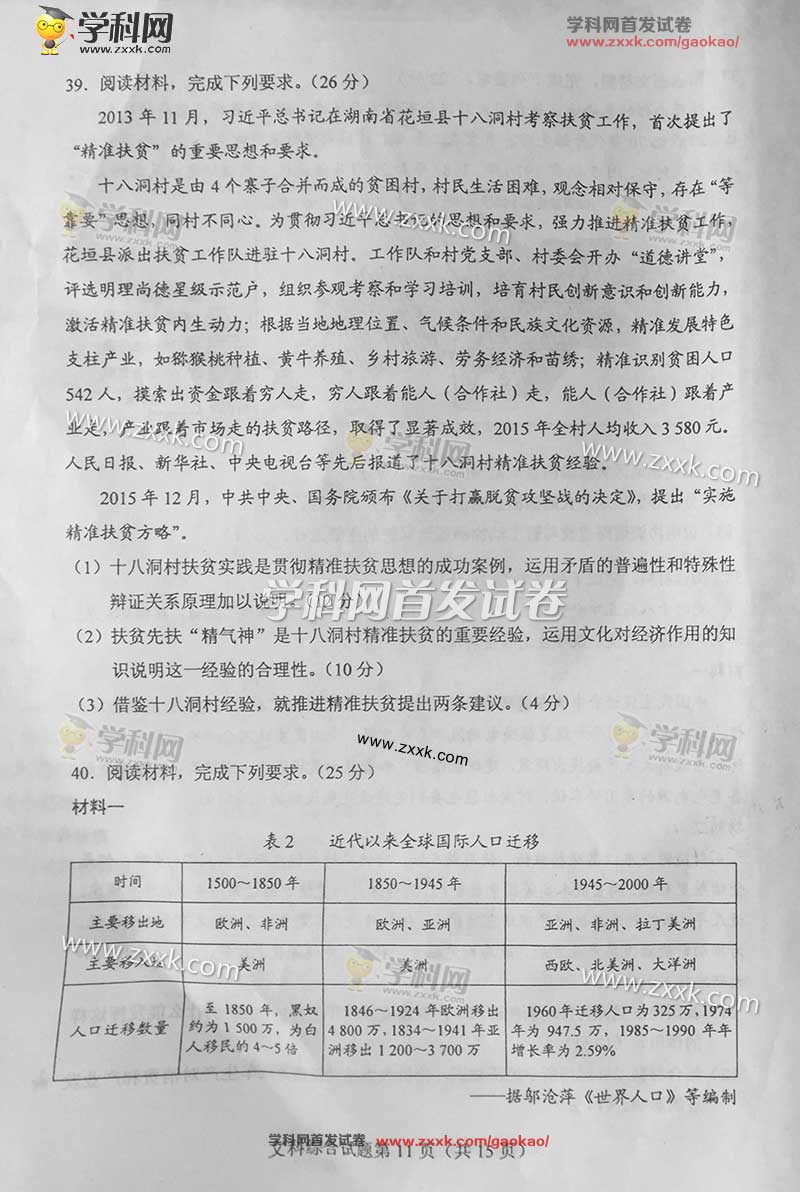 学科网
www.zxxk.com
学科网首发试卷
www.zxxk.com/gaokao/
39．阅读材料，完成下列要求。（26 分）
2013 年 11 月，习近平总书记在湖南省花垣县十八洞村考察扶贫工作，首次提出了
“精准扶贫”的重要思想和要求。
十八洞村是由 4 个寨子合并而成的贫困村，村民生活困难，观念相对保守，存在“等
靠要”思想，同村不同心。为贯彻习近平总书记的思想和要求，强力推进精准扶贫工作，
花垣县派出扶贫工作队进驻十八洞村。工作队和村党支部、村委会开办“道德讲堂”，
评选明理尚德星级示范户，组织参观考察和学习培训，培育村民创新意识和创新能力，
激活精准扶贫内生动力；根据当地地理位置、气候条件和民族文化资源，精准发展特色
支柱产业，如猕猴桃种植、黄牛养殖、乡村旅游、劳务经济和苗绣；精准识别贫困人口
542 人，摸索出资金跟着穷人走，穷人跟着能人（合作社）走，能人（合作社）跟着产
业走，产业跟着市场走的扶贫路径，取得了显著成效，2015 年全村人均收入 3 580 元。
人民日报、新华社、中央电视台等先后报道了十八洞村精准扶贫经验。
2015 年 12 月，中共中央、国务院颁布《关于打赢脱贫攻坚战的决定》，提出“实施
精准扶贫方略”。
（1）十八洞村扶贫实践是贯彻精准扶贫思想的成功案例，运用矛盾的普遍性和特殊性
辩证关系原理加以说明。（12 分）
（2）扶贫先扶“精气神”是十八洞村精准扶贫的重要经验，运用文化对经济作用的知
识说明这一经验的合理性。（10 分）
（3）借鉴十八洞村经验，就推进精准扶贫提出两条建议。（4 分）
40．阅读材料，完成下列要求。（25 分）
材料一
表 2 近代以来全球国际人口迁移
时间 1500～1850 年 1850～1945 年 1945～2000 年
主要移出地 欧洲、非洲 欧洲、亚洲 亚洲、非洲、拉丁美洲
主要移入地 美洲 美洲 西欧、北美洲、大洋洲
人口迁移数量 至 1850 年，黑奴 1846～1924 年欧洲移出 1960年迁移人口为 325 万，1974
约为 1 500万，为白 4 800 万，1834～1941 年亚 年为 947.5 万，1985～1990 年年
人移民的 4～5 倍 洲移出 1 200～3 700 万 增长率为 2.59%
——据邬沧萍《世界人口》等编制
学科网首发试卷 www.zxxk.com/gaokao/
文科综合试题第 11 页（共 15 页）